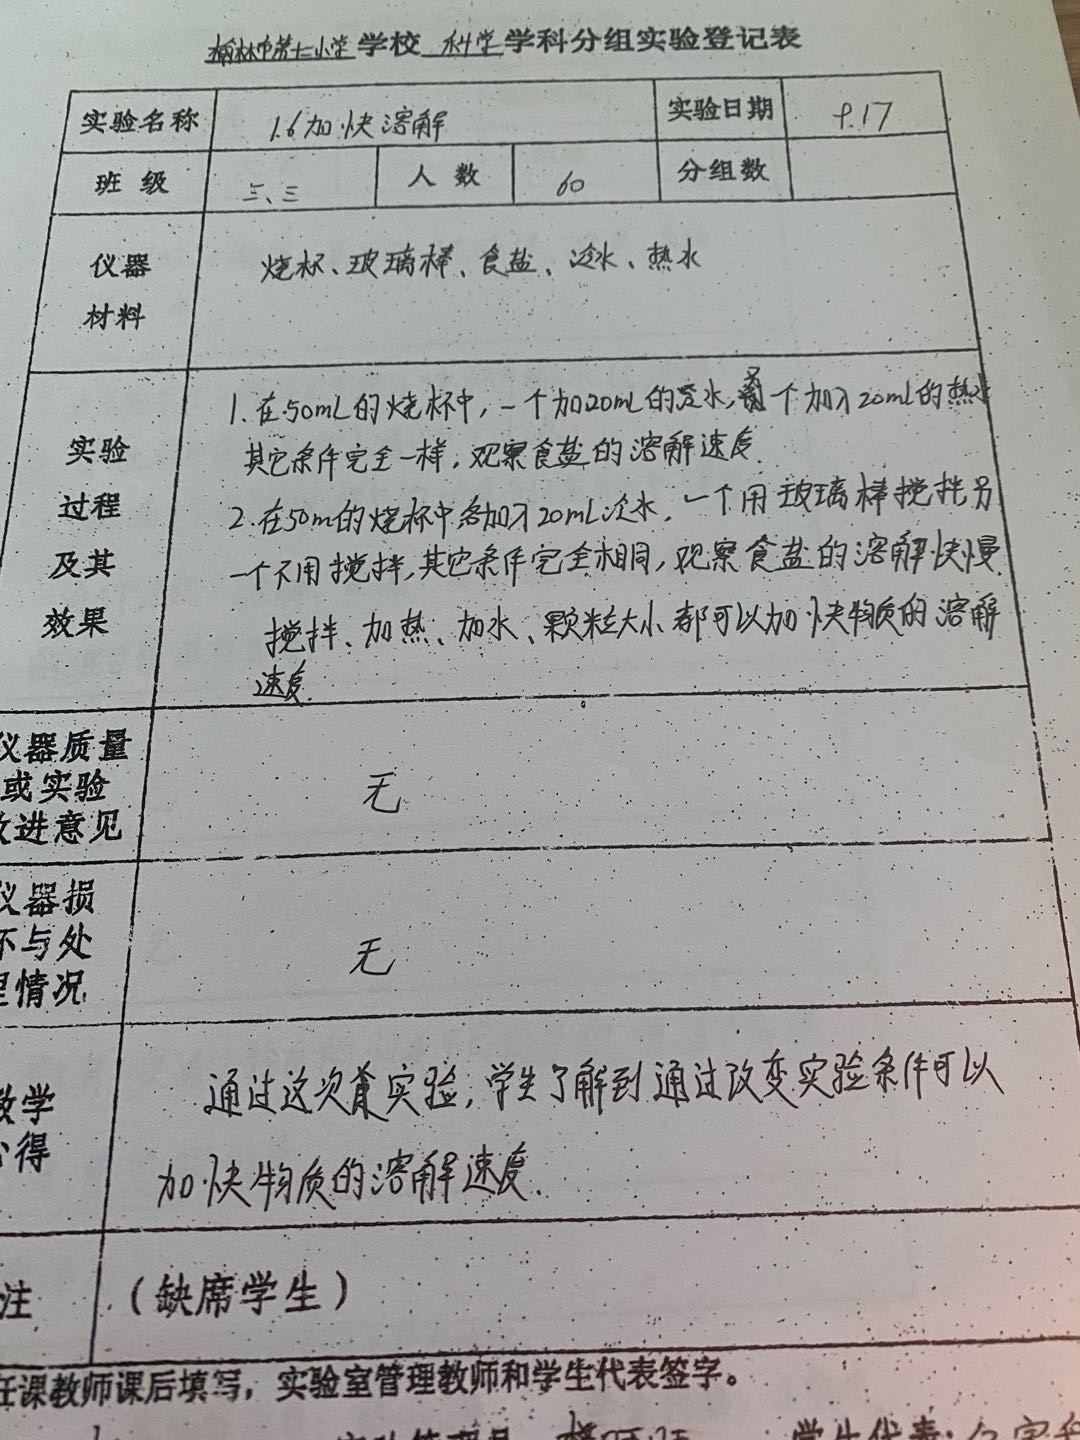 榆林市第七小学学校 科学学科分组实验登记表
实验名称 1.6加快溶解 实验日期 9.17
班级 三、三 人数 60 分组数
仪器 烧杯、玻璃棒、食盐、冷水、热水
材料
1.在50mL的烧杯中,一个加20mL的冷水,另一个加入20mL的热水
实验 其它条件完全一样,观察食盐的溶解速度.
过程 2.在50m的烧杯中各加入20mL冷水,一个用玻璃棒搅拌另
及其 一个不用搅拌,其它条件完全相同,观察食盐的溶解快慢.
效果 搅拌、加热、加水、颗粒大小都可以加快物质的溶解
速度.
仪器质量
或实验 无
改进意见
仪器损
坏与处 无
理情况
教学 通过这次实验,学生了解到通过改变实验条件可以
心得 加快物质的溶解速度.
注 (缺席学生)
任课教师课后填写,实验室管理教师和学生代表签字。
学生代表: